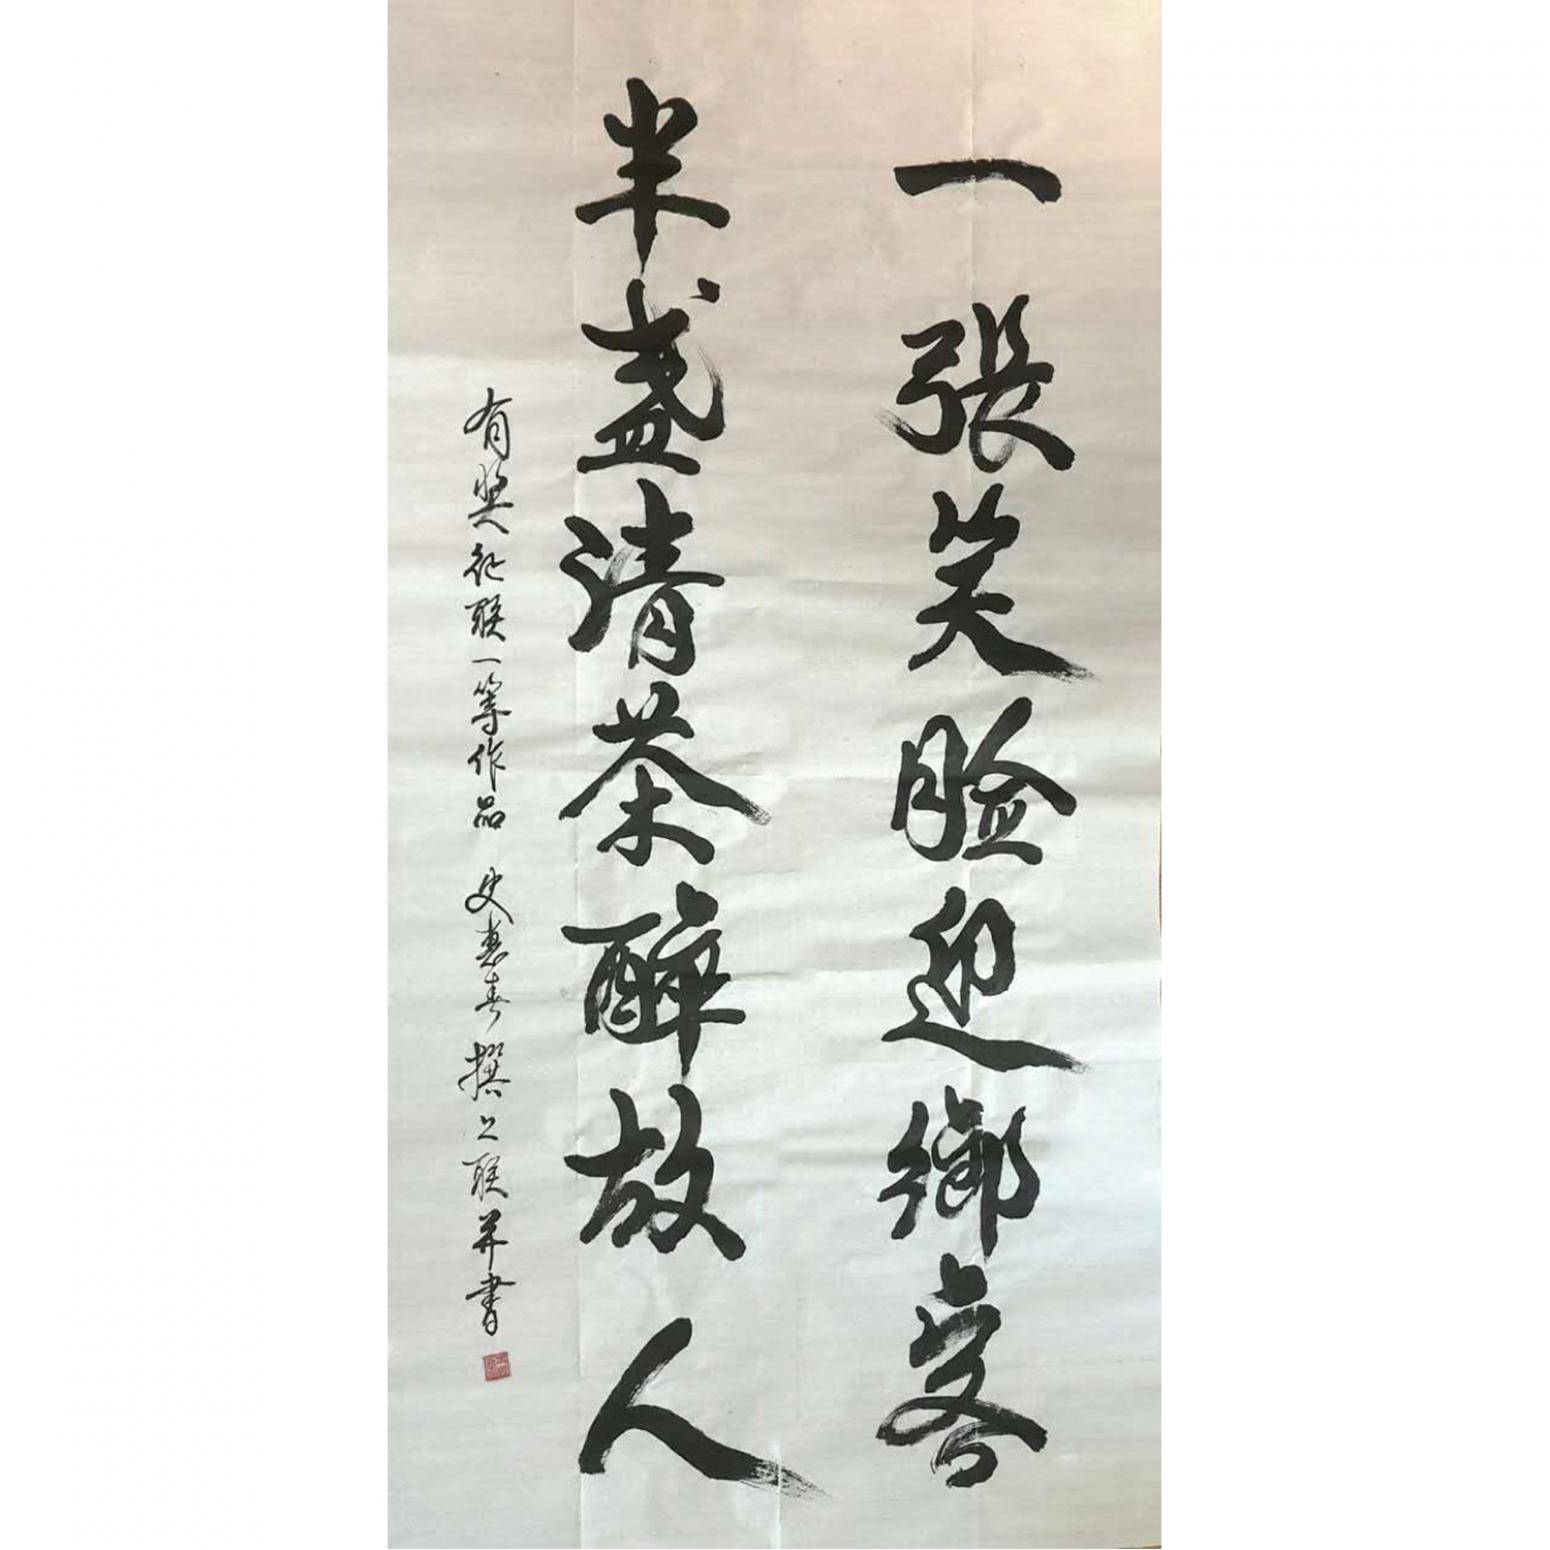 一張笑脸迎鄉客
半盏清茶醉故人
有奖征联一等作品 史惠春撰上联并書